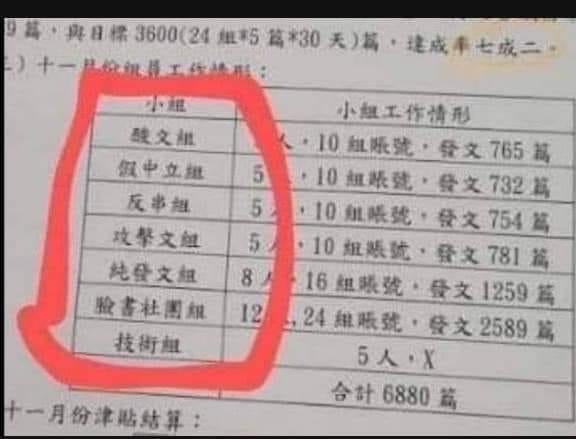 9 篇，與目標 3600(24 組*5 篇*30 天)篇，達成率七成二。
)十一月份組員工作情形：
小組 小組工作情形
酸文組 人，10 組賬號，發文 765 篇
假中立組 5 人，10 組賬號，發文 732 篇
反串組 5 人，10 組賬號，發文 754 篇
攻擊文組 5 人，10 組賬號，發文 781 篇
純發文組 8 人，16 組賬號，發文 1259 篇
臉書社團組 12人，24 組賬號，發文 2589 篇
技術組 5 人，X
合計 6880 篇
十一月份津貼結算：